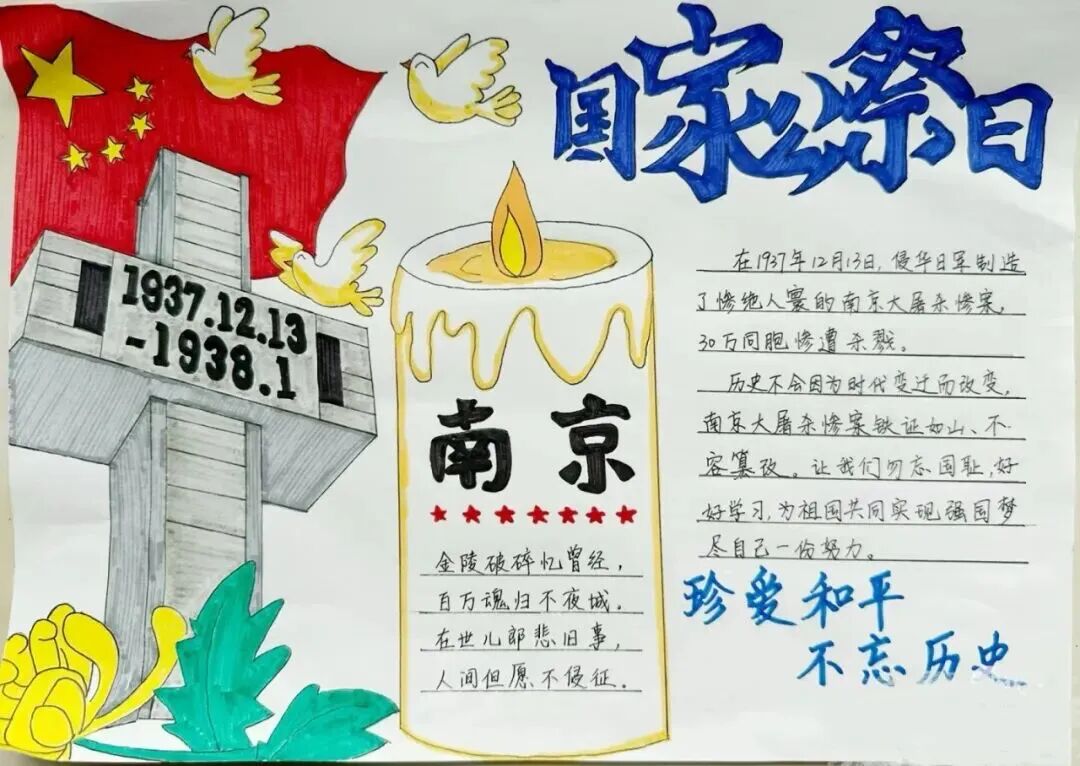 国家公祭日
1937.12.13
-1938.1
南京
金陵破碎忆曾经，
百万魂归不夜城。
在世儿郎悲旧事，
人间但愿不侵征。
在1937年12月13日，侵华日军制造
了惨绝人寰的南京大屠杀惨案，
30万同胞惨遭杀戮。
历史不会因为时代变迁而改变，
南京大屠杀惨案铁证如山、不
容篡改。让我们勿忘国耻，好
好学习，为祖国共同实现强国梦
尽自己一份努力。
珍爱和平
不忘历史